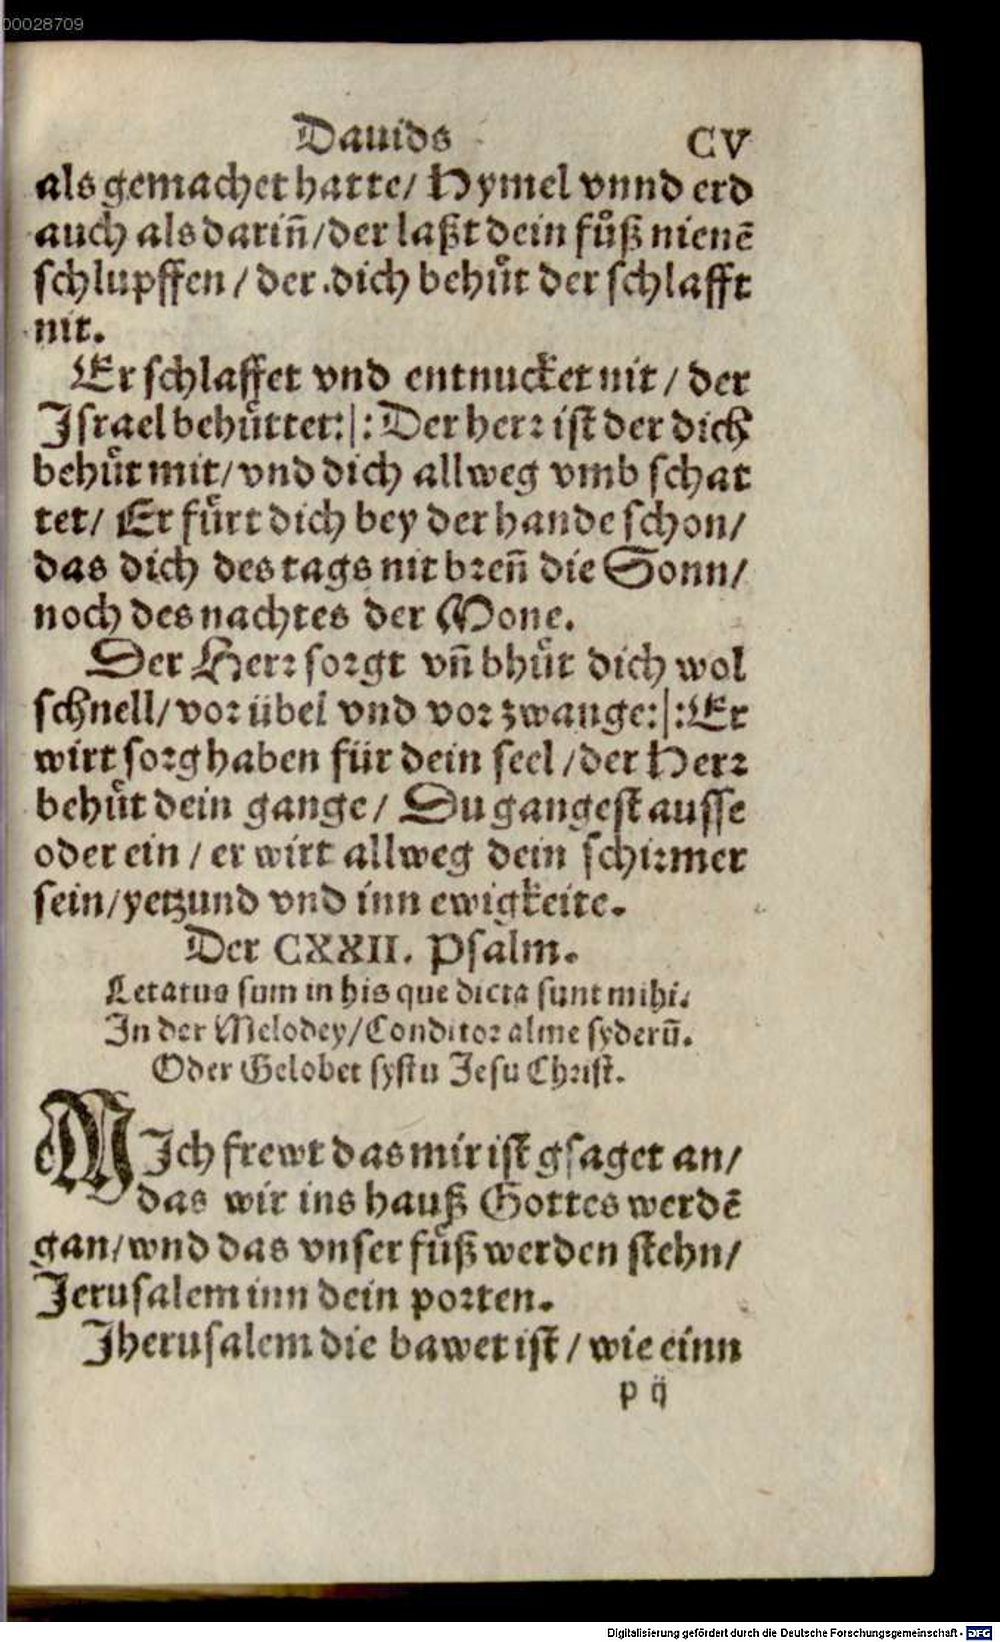 00028709
Dauids CV
als gemachet hatte/ Hymel vnnd erd
auch als darin̄/der laßt dein fuͦß nienē
schlupffen/ der dich behuͤt der schlafft
nit.
Er schlaffet vnd entnucket nit/ der
Israel behuͤttet:|: Der herꝛ ist der dich
behuͤt mit/ vnd dich allweg vmb schat
tet/ Er fuͤrt dich bey der hande schon/
das dich des tags nit bꝛen̄ die Sonn/
noch des nachtes der Mone.
Der Herꝛ soꝛgt vn̄ bhuͤt dich wol
schnell/ voꝛ übel vnd voꝛ zwange:|: Er
wirt soꝛg haben für dein seel/der Herꝛ
behuͤt dein gange/ Du gangest ausse
oder ein/ er wirt allweg dein schiꝛmer
sein/yetzund vnd inn ewigkeite.
Der CXXII. Psalm.
Letatus sum in his que dicta sunt mihi.
In der Melodey/Conditoꝛ alme syderū.
Oder Gelobet systu Jesu Chꝛist.
MIch frewt das mir ist gsaget an/
das wir ins hauß Gottes werdē
gan/wnd das vnser fuͤß werden stehn/
Jerusalem inn dein poꝛten.
Jherusalem die bawet ist/ wie einn
p ij
Digitalisierung gefördert durch die Deutsche Forschungsgemeinschaft - DFG